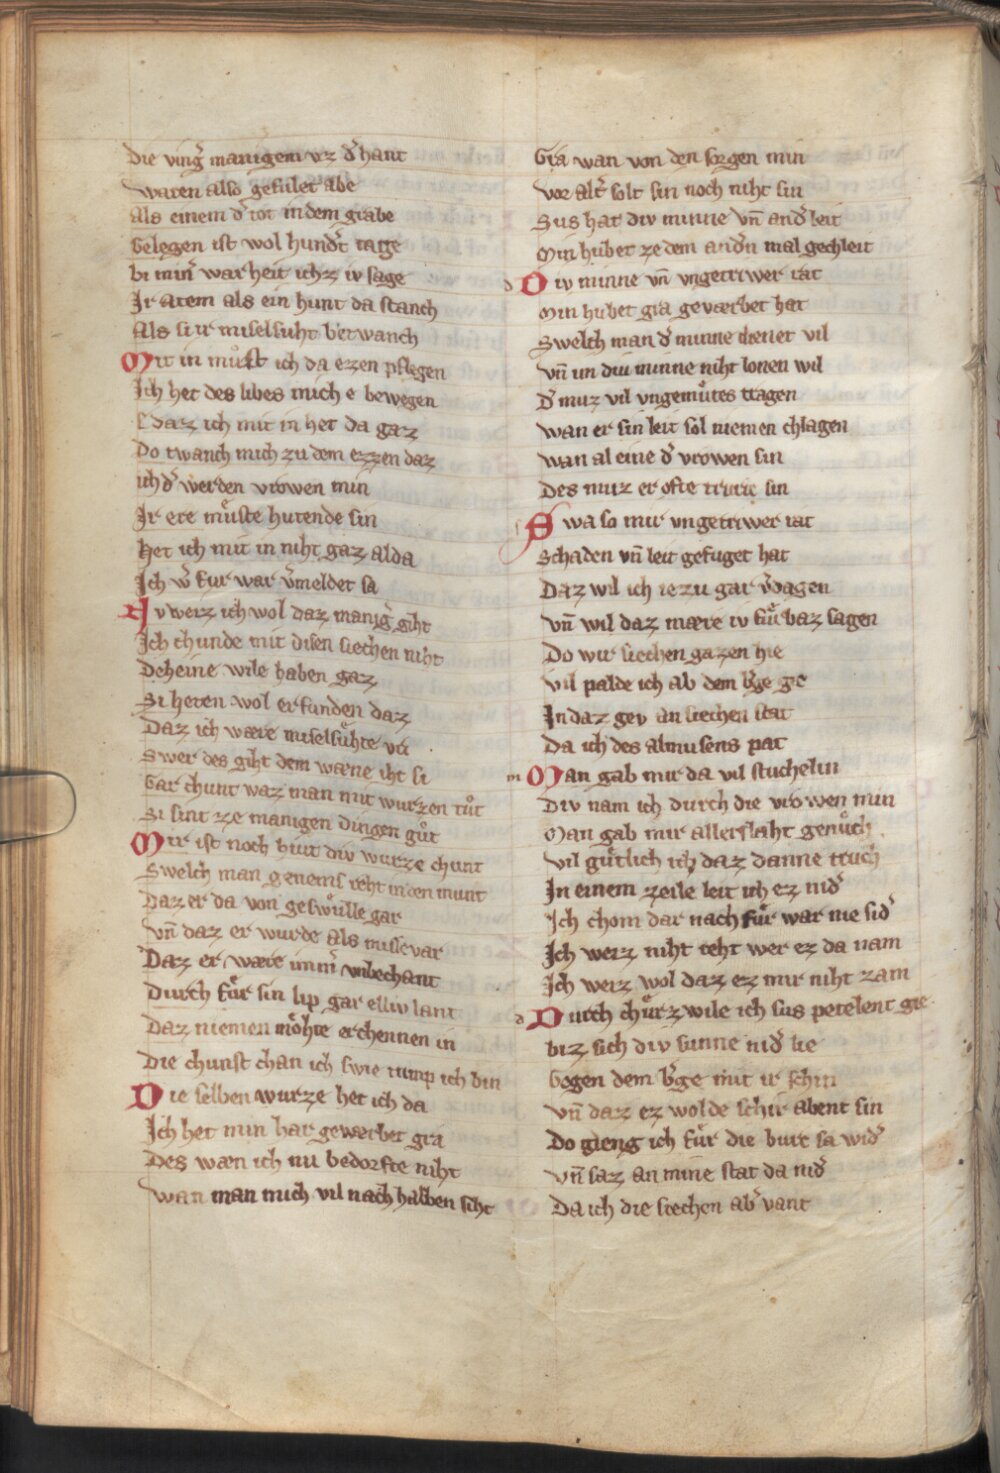 Die ving̃ manigem vz d̉ hant
waren also gefulet abe
Als einem d̉ tot in dem grabe
Gelegen ist wol hund̉t tage
bi min̉ warheit ichz iv sage
Ir atem als ein hunt da stanch
Als si ir miselsuht betwanch
Mit in muͦst ich da ezzen pflegen
Ich het des libes mich e bewegen
E daz ich mit in het da gaz
Do twanch mich zu dem ezzen daz
ich d̉ werden vrowen min
Ir ere muͤ̈ste hutende sin
Het ich mit in niht gaz alda
Ich w̉ fur war v̉meldet sa
Nv weiz ich wol daz manig̉ giht
Ich chunde mit disen siechen niht
Deheine wile haben gaz
Si heten wol erfunden daz
Daz ich wære miselsuͤhte vri
Swer des giht dem wæne iht si
Gar chunt waz man mit wurzen tuͦt
Si sint ze manigen dingen guͦt
Mir ist noch hiut div wurze chunt
Swelch man genems reht in den munt
Daz er da von geswuͤlle gar
vn̄ daz er wurde als misevar
Daz er wære imm̉ vnbechant
Durch fuͤr sin lip gar elliv lant
Daz niemen moͤhte erchennen in
Die chunst chan ich swie tump ich bin
Die selben wurze het ich da
Ich het min har geværbet gra
Des wæn ich nu bedorfte niht
wan man mich vil nach halben siht
Gra wan von den sorgen min
vor alt̉ solt sin noch niht sin
Sus hat div minne vn̄ and̉ leit
Min hubet ze dem and̉n mal gechleit
d Div minne vn̄ vngetriwer rat
Min hubet gra geværbet hat
Swelch man d̉ minne dienet vil
vn̄ im diu minne niht lonen wil
D̉ muz vil vngemuͤtes tragen
wan er sin leit sol niemen chlagen
wan al eine d̉ vrowen sin
Des muz er ofte truric sin
Swa so mir vngetriwer rat
Schaden vn̄ leit gefuget hat
Daz wil ich ie zu gar v̉dagen
vn̄ wil daz mære iv fuͤrbaz sagen
Do wir siechen gazen hie
vil palde ich ab dem b̉ge gie
In daz gev an siechen stat
Da ich des almusens pat
m Man gab mir da vil stuchelin
Div nam ich durch die vrowen min
Man gab mir allerslaht genuͦch
vil guͤtlich ich daz danne truch
In einem zeile leit ich ez nid̉
Ich chom dar nach fuͤr war nie sid̉
Ich weiz niht reht wer ez da nam
Ich weiz wol daz ez mir niht zam
d Durch chuͤrzwile ich sus petelent gie
biz sich div sunne nid̉ lie
Gogen dem b̉ge mit ir schin
vn̄ daz ez wolde schir abent sin
Do gieng ich fuͤr die burc sa wid̉
vn̄ saz an mine stat da nid̉
Da ich die siechen ab̉ vant